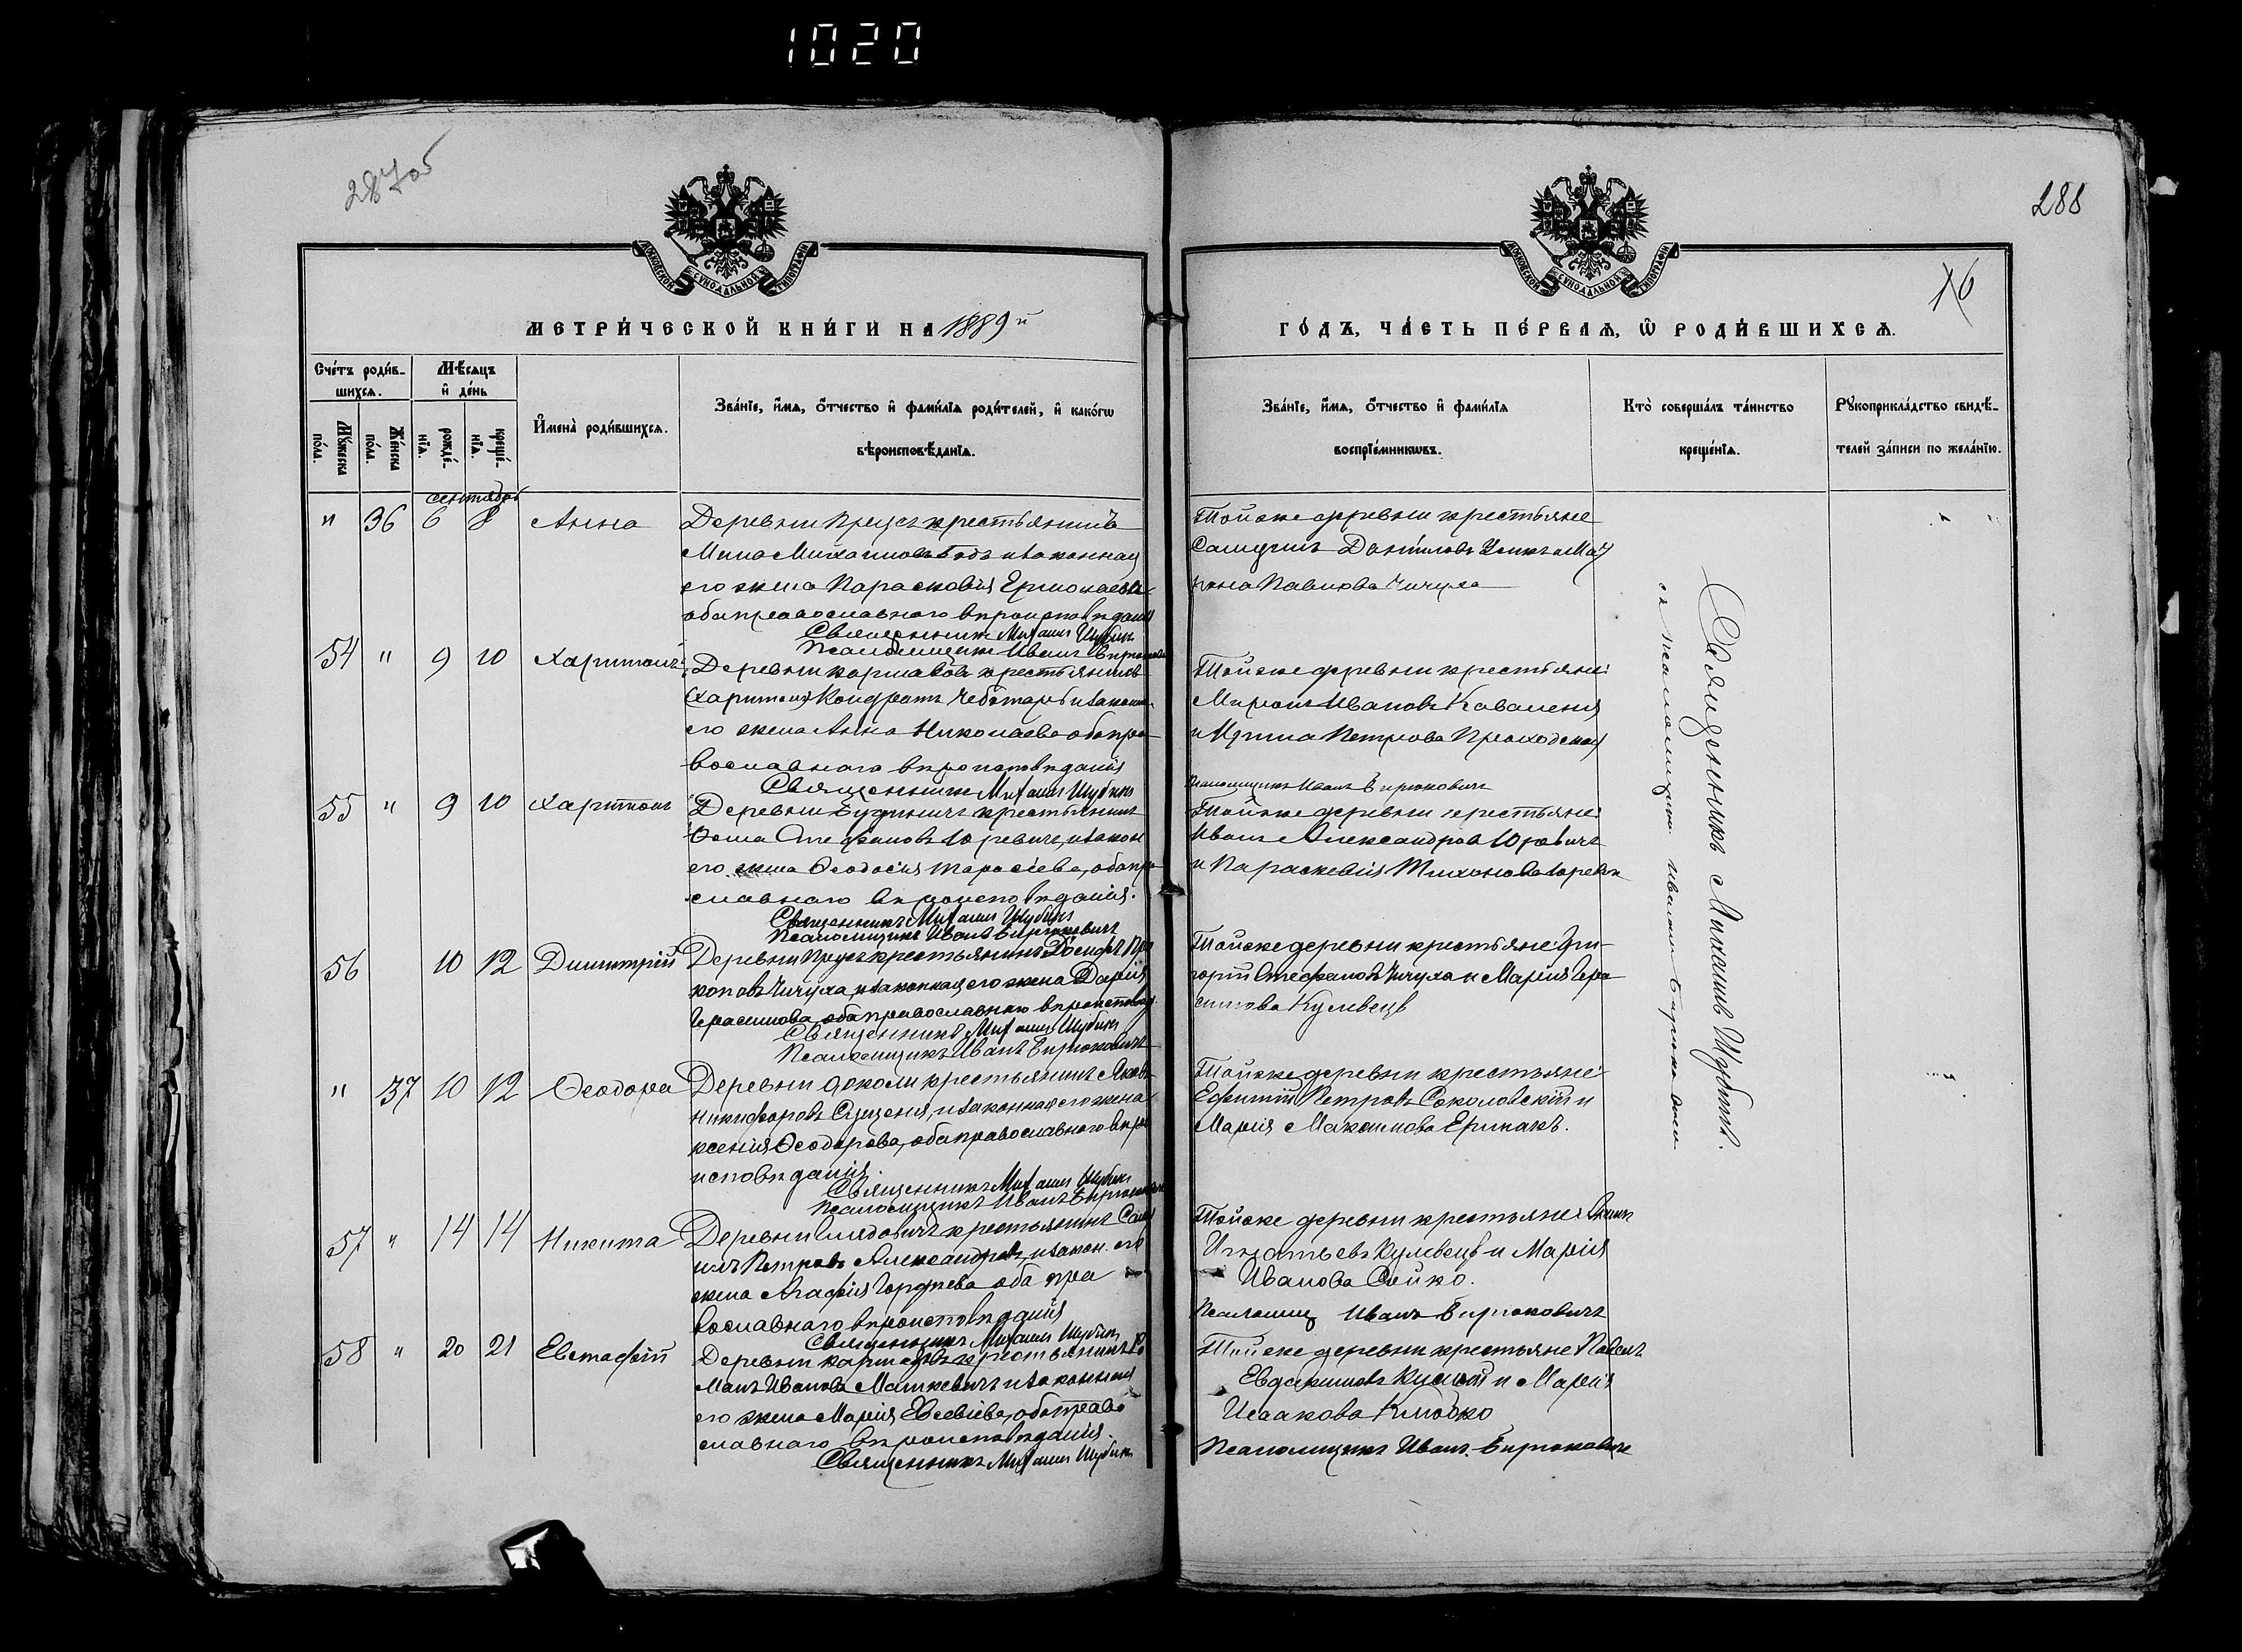 1020
287об
288
16
МОСКОВСКОЙ СѴНОДАЛЬНОЙ ТИПОГРАФІИ
МОСКОВСКОЙ СѴНОДАЛЬНОЙ ТИПОГРАФІИ
МЕТРИ́ЧЕСКОЙ КНИ́ГИ НА 1889й
ГО́ДЪ, ЧА́СТЬ ПЕ́РВАѦ, Ѽ РОДИ́ВШИХСѦ.
Сче́тъ роди́в-
шихсѧ.
Мѣ́сѧцъ
и҆ де́нь
Мꙋ́жеска
по́ла.
Же́нска
по́ла.
рожде́-
нїѧ.
креще́-
нїѧ.
И҆мена̀ роди́вшихсѧ.
Зва́нїе, и҆́мѧ, ѻ҆́тчество и҆ фами́лїѧ роди́телей, и҆ како́гѡ
вѣроисповѣ́данїѧ.
Зва́нїе, и҆́мѧ, ѻ҆́тчество и҆ фами́лїѧ
воспрїе́мникѡвъ.
Кто̀ соверша́лъ та́инство
креще́нїѧ.
Рꙋкоприкла́дство свидѣ́-
телей за́писи по жела́нїю.
сентябрь
" 36 6 8 Анна
Деревни Прусъ крестьянинъ
Мина Михаиловъ и законная
его жена Парасковія Ермолаева
оба православнаго вѣроисповѣданія
Священникъ Михаилъ Шубинъ
Псаломщикъ Иванъ Бирюковичъ
Тойже деревни крестьяне
Самуилъ Даніиловъ и Мат
рона Павлова Чичула
54 " 9 10 Харитонъ
Деревни крестьянинъ
Харитонъ Кондратъ Чеботарь и законн.
его жена Анна Николаева оба пра
вославнаго вѣроисповѣданія
Священникъ Михаилъ Шубинъ
Тойже деревни крестьяне:
Миронъ Ивановъ Каваленя
и Ирина Петрова
Псаломщикъ Иванъ Бирюковичъ
55 " 9 10 Харитонъ
Деревни крестьянинъ
Ѳома Стефановъ Юревичъ, и закон
его жена Ѳеодосія Тарасіева, оба пра
славнаго вѣроисповѣданія.
Священникъ Михаилъ Шубинъ
Псаломщикъ Иванъ Бирюковичъ
Тойже деревни крестьяне:
Иванъ Александровъ Юревичъ
и Параскевія Тихонова Юревич
56 10 12 Димитрій
Деревни Прусъ крестьянинъ Іосифъ Про
коповъ Чичула, и законная его жена Дарія
Герасимова, оба православнаго вѣроисповѣд.
Священникъ Михаилъ Шубинъ
Псаломщикъ Иванъ Бирюковичъ
Тойже деревни крестьяне: Гри-
горій Стефановъ Чичула и Марія Гера
симова Кулевецъ
" 37 10 12 Ѳеодора
Деревни крестьянинъ Яковъ
Никифоровъ Сущеня, и законная его жена
ксенія Ѳеодорова, оба православнаго вѣро
исповѣданія.
Священникъ Михаилъ Шубинъ
Псаломщикъ Иванъ Бирюковичъ
Тойже деревни крестьяне:
Ефимій Петровъ Соколовскій и
Марія Максимова Ермакъ.
57 " 14 14 Никита
Деревни крестьянинъ Саму
илъ Петровъ Александровъ, и закон. его
жена Агафія Гордѣева оба пра
вославнаго вѣроисповѣданія
Священникъ Михаилъ Шубинъ
Тойже деревни крестьяне:
Игнатьевъ Кулевецъ и Марія
Иванова Сойко.
Псаломщ Иванъ Бирюковичъ
58 " 20 21 Евстафій
Деревни крестьянинъ Ро
манъ Иванова Машкевичъ и законная
его жена Марія Евсевіева, оба право
славнаго вѣроисповѣданія.
Священникъ Михаилъ Шубинъ
Тойже деревни крестьяне Павелъ
Евдокимовъ и Марія
Исаакова
Псаломщикъ Иванъ Бирюковичъ
Священникъ Михаилъ Шубинъ.
съ Псаломщикомъ Иваномъ Бирюковичемъ